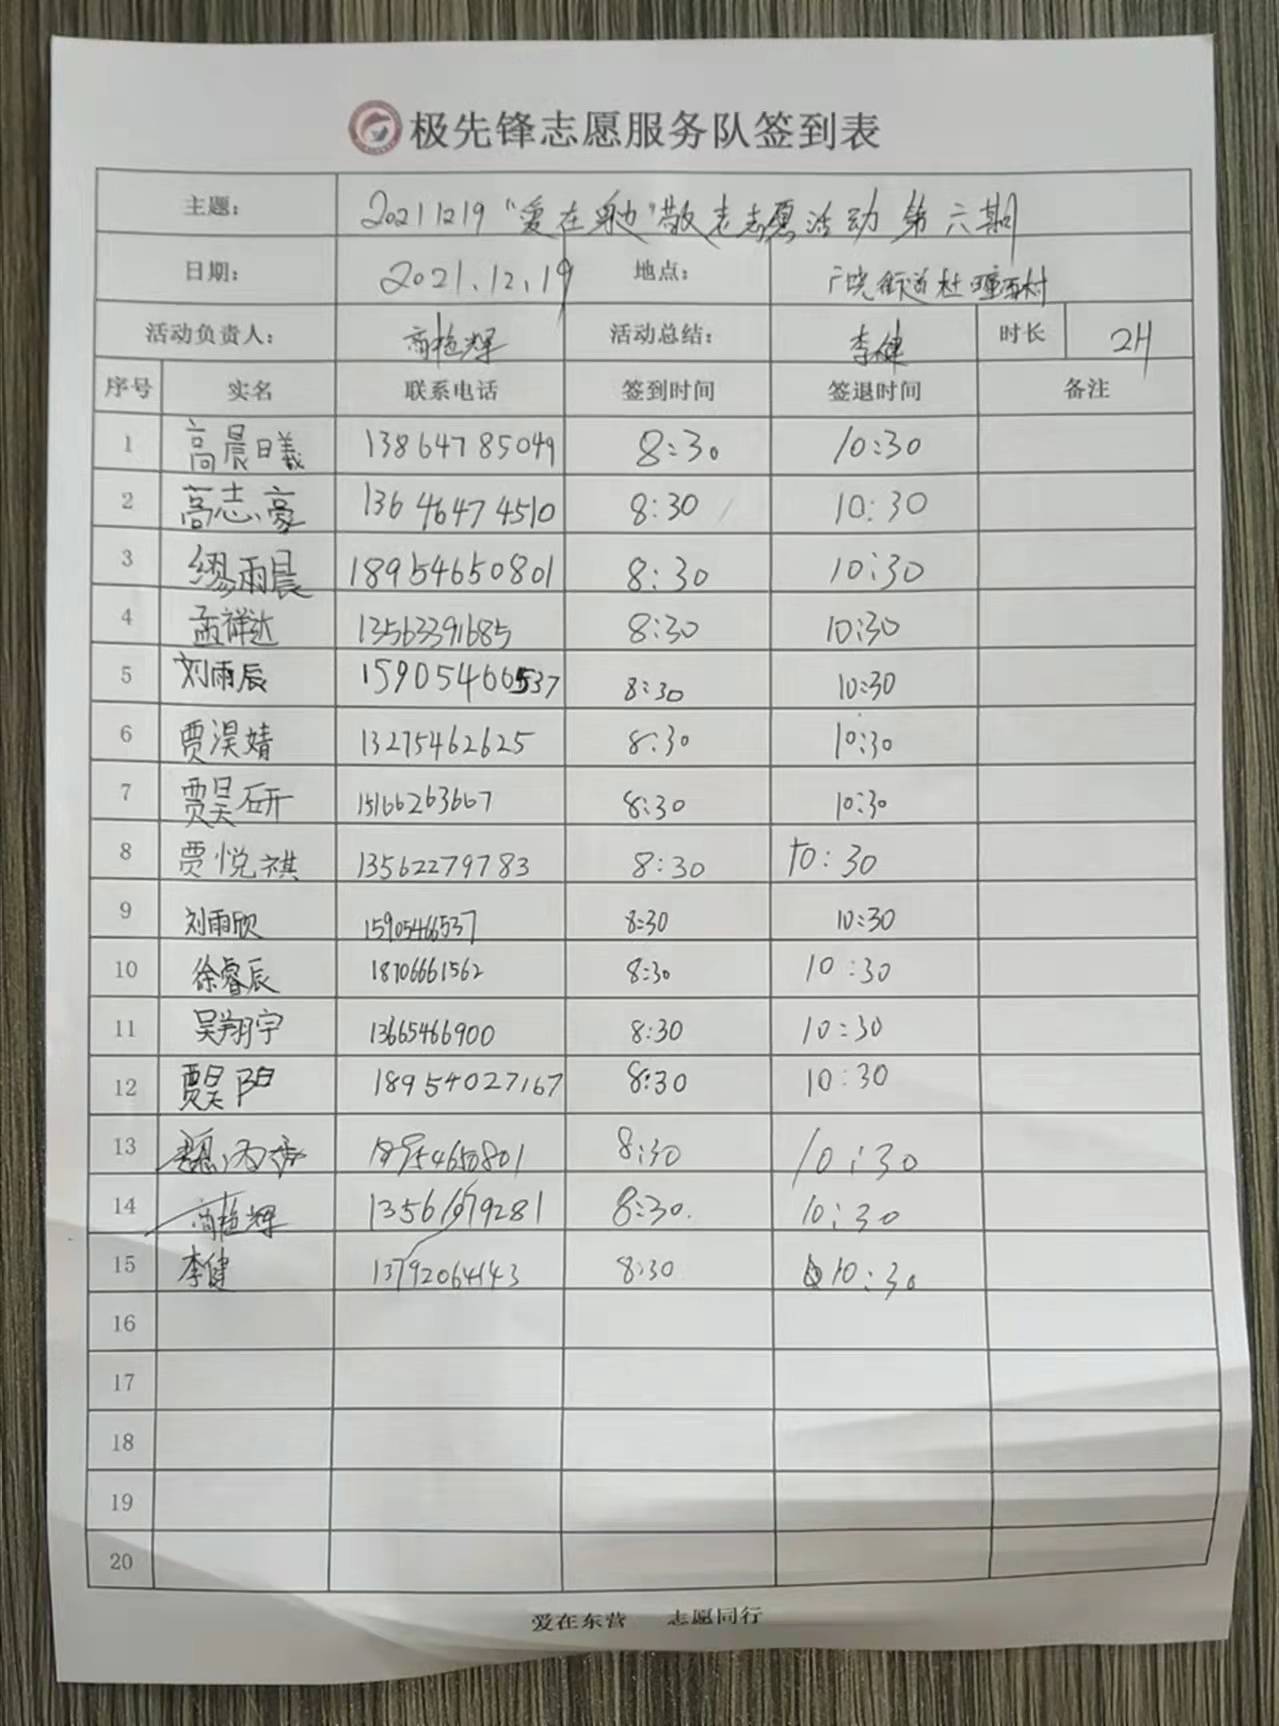 极先锋志愿服务队签到表
主题： 20211219“爱在身边”敬老志愿活动 第六期
日期： 2021.12.19 地点： 广饶街道杜疃西村
活动负责人： 尚艳辉 活动总结： 李健 时长 2H
序号 实名 联系电话 签到时间 签退时间 备注
1 高晨曦 13864785049 8:30 10:30
2 高志豪 13646474510 8:30 10:30
3 缪雨晨 18954650801 8:30 10:30
4 孟祥达 13563391685 8:30 10:30
5 刘雨辰 15905466537 8:30 10:30
6 贾淏婧 13275462625 8:30 10:30
7 贾昊研 15166263667 8:30 10:30
8 贾悦祺 13562279783 8:30 10:30
9 刘雨欣 15905466537 8:30 10:30
10 徐睿辰 18706661562 8:30 10:30
11 吴翔宇 13665466900 8:30 10:30
12 贾昊阳 18954027167 8:30 10:30
13 18954650801 8:30 10:30
14 尚艳辉 13561979281 8:30. 10:30
15 李健 13792064143 8:30 10:30
16
17
18
19
20
爱在东营 志愿同行